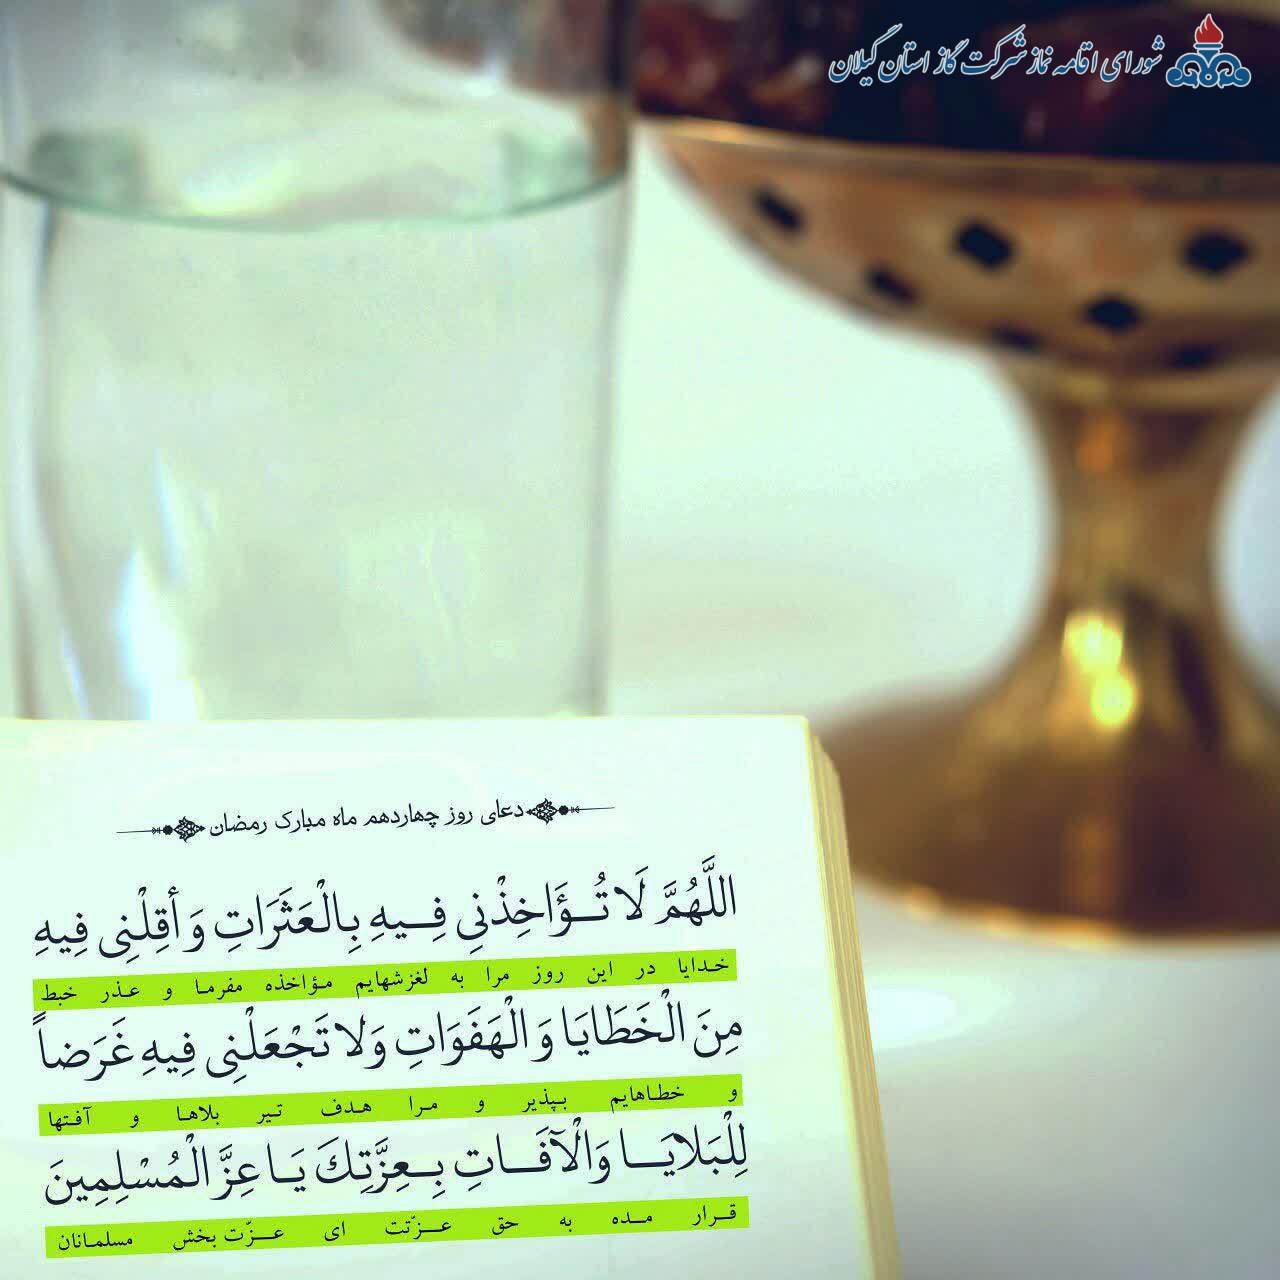 شورای اقامه نماز شرکت گاز استان گیلان
دعای روز چهاردهم ماه مبارک رمضان
اللَّهُمَّ لَا تُؤَاخِذْنِي فِيهِ بِالْعَثَرَاتِ وَ أَقِلْنِي فِيهِ
خدایا در این روز مرا به لغزشهایم مؤاخذه مفرما و عذر خبط
مِنَ الْخَطَايَا وَ الْهَفَوَاتِ وَ لا تَجْعَلْنِي فِيهِ غَرَضاً
و خطاهایم بپذیر و مرا هدف تیر بلاها و آفتها
لِلْبَلايَا وَالْآفَاتِ بِعِزَّتِكَ يَا عِزَّ الْمُسْلِمِينَ
قرار مده به حق عزّتت ای عزّت بخش مسلمانان